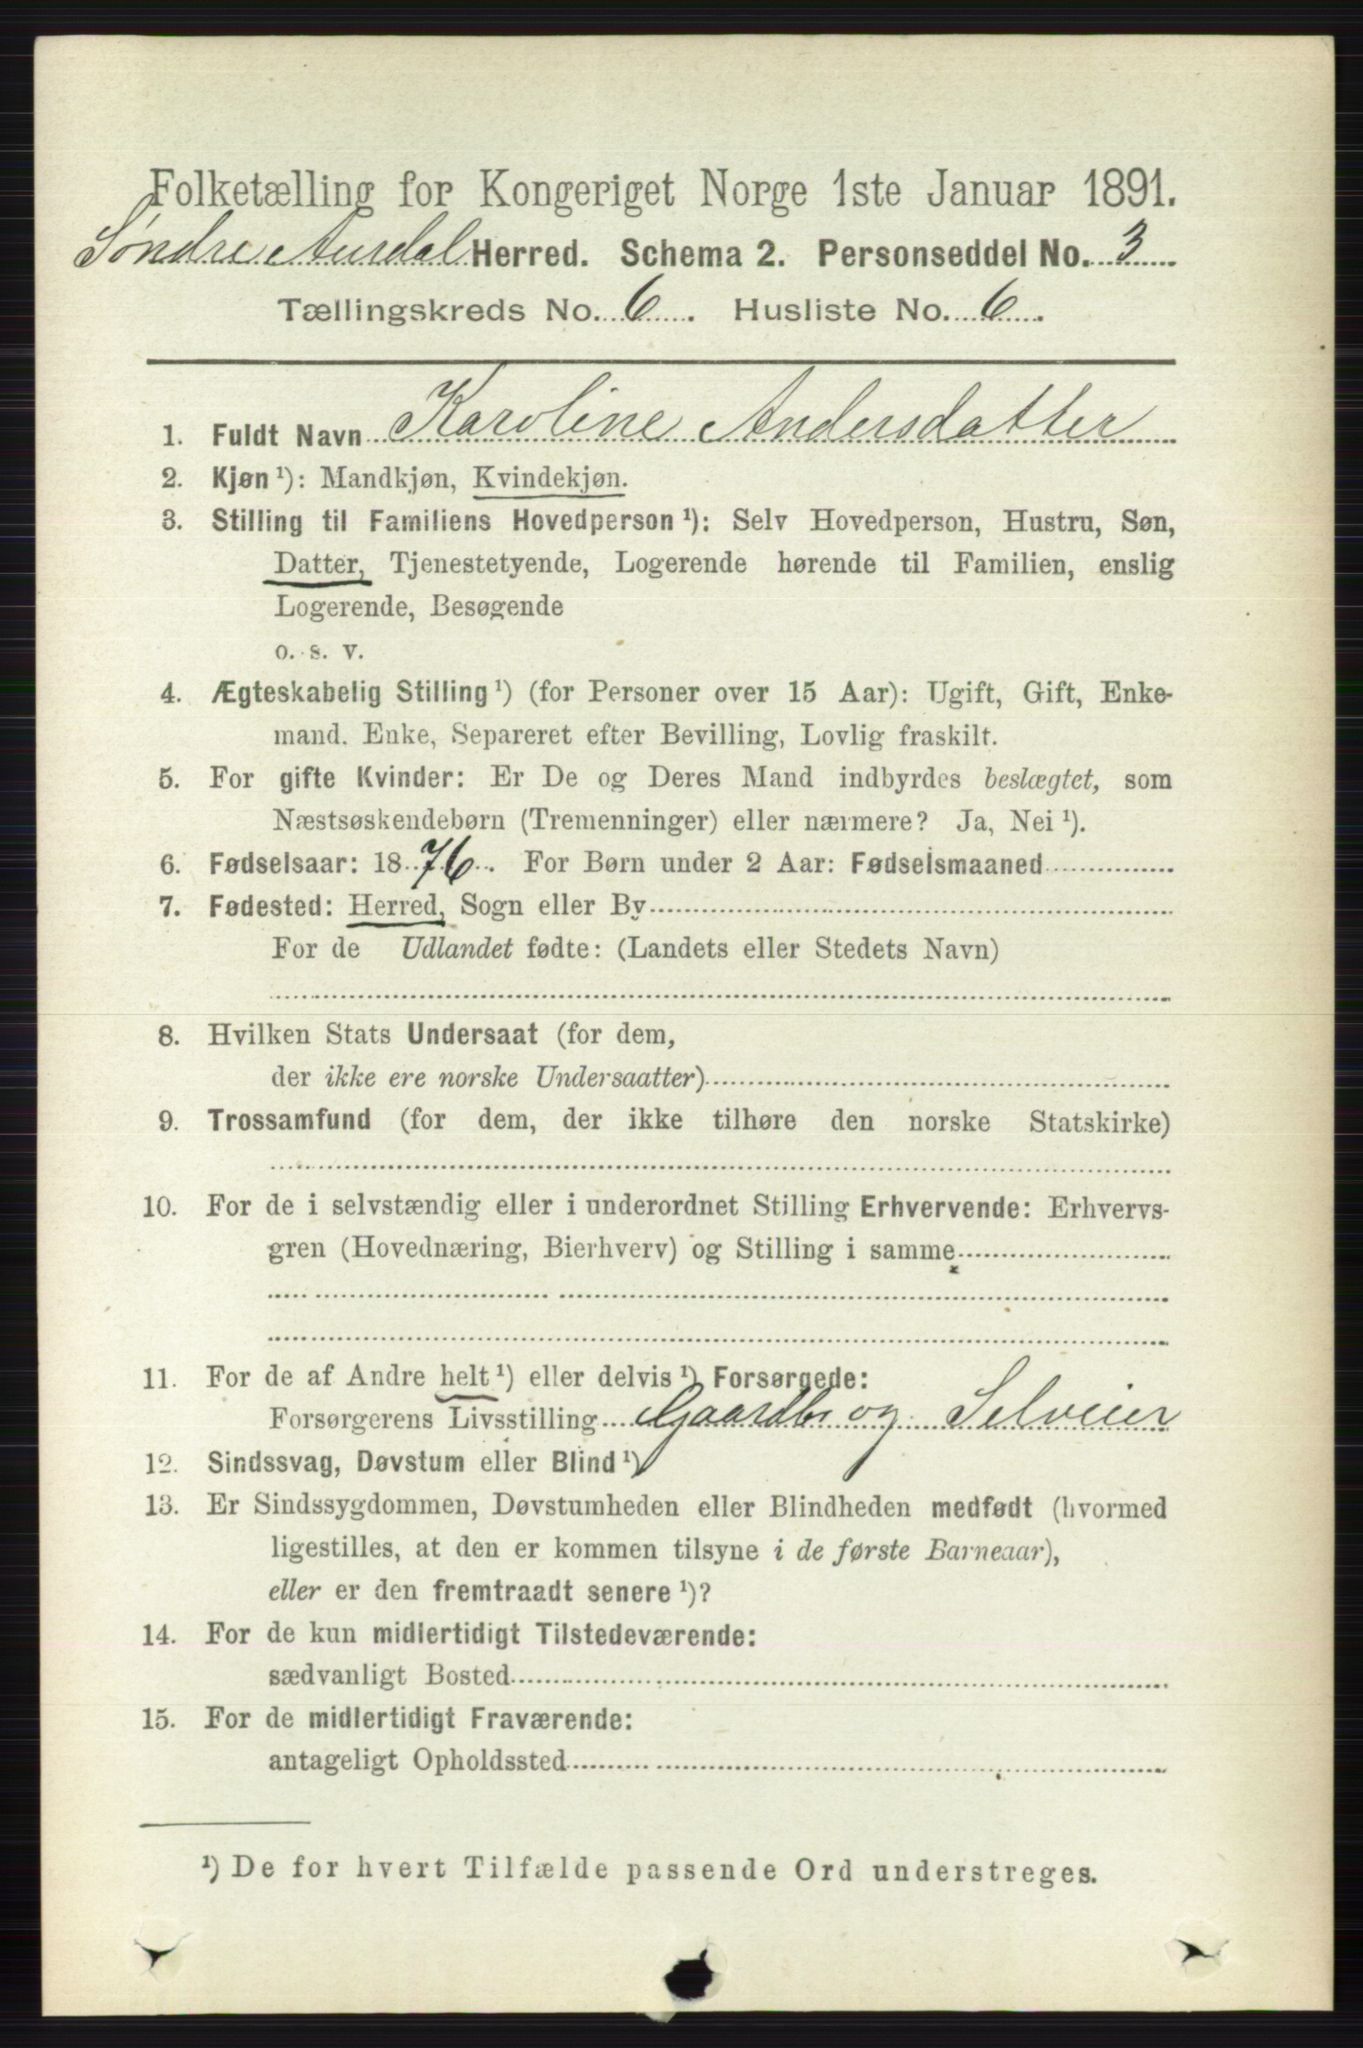 Folketælling for Kongeriget Norge 1ste Januar 1891.
Søndre Aurdal Herred. Schema 2. Personseddel No. 3
Tællingskreds No. 6. Husliste No. 6.
1. Fuldt Navn Karoline Andersdatter
2. Kjøn ¹): Mandkjøn, Kvindekjøn.
3. Stilling til Familiens Hovedperson ¹): Selv Hovedperson, Hustru, Søn,
Datter, Tjenestetyende, Logerende hørende til Familien, enslig
Logerende, Besøgende
o. s. v.
4. Ægteskabelig Stilling ¹) (for Personer over 15 Aar): Ugift, Gift, Enke-
mand. Enke, Separeret efter Bevilling, Lovlig fraskilt.
5. For gifte Kvinder: Er De og Deres Mand indbyrdes beslægtet, som
Næstsøskendebørn (Tremenninger) eller nærmere? Ja, Nei ¹).
6. Fødselsaar: 1876. For Børn under 2 Aar: Fødselsmaaned
7. Fødested: Herred, Sogn eller By
For de Udlandet fødte: (Landets eller Stedets Navn)
8. Hvilken Stats Undersaat (for dem,
der ikke ere norske Undersaatter)
9. Trossamfund (for dem, der ikke tilhøre den norske Statskirke)
10. For de i selvstændig eller i underordnet Stilling Erhvervende: Erhvervs-
gren (Hovednæring, Bierhverv) og Stilling i samme
11. For de af Andre helt ¹) eller delvis ¹) Forsørgede:
Forsørgerens Livsstilling Gaardbr og Selveier
12. Sindssvag, Døvstum eller Blind ¹)
13. Er Sindssygdommen, Døvstumheden eller Blindheden medfødt (hvormed
ligestilles, at den er kommen tilsyne i de første Barneaar),
eller er den fremtraadt senere ¹)?
14. For de kun midlertidigt Tilstedeværende:
sædvanligt Bosted
15. For de midlertidigt Fraværende:
antageligt Opholdssted
¹) De for hvert Tilfælde passende Ord understreges.